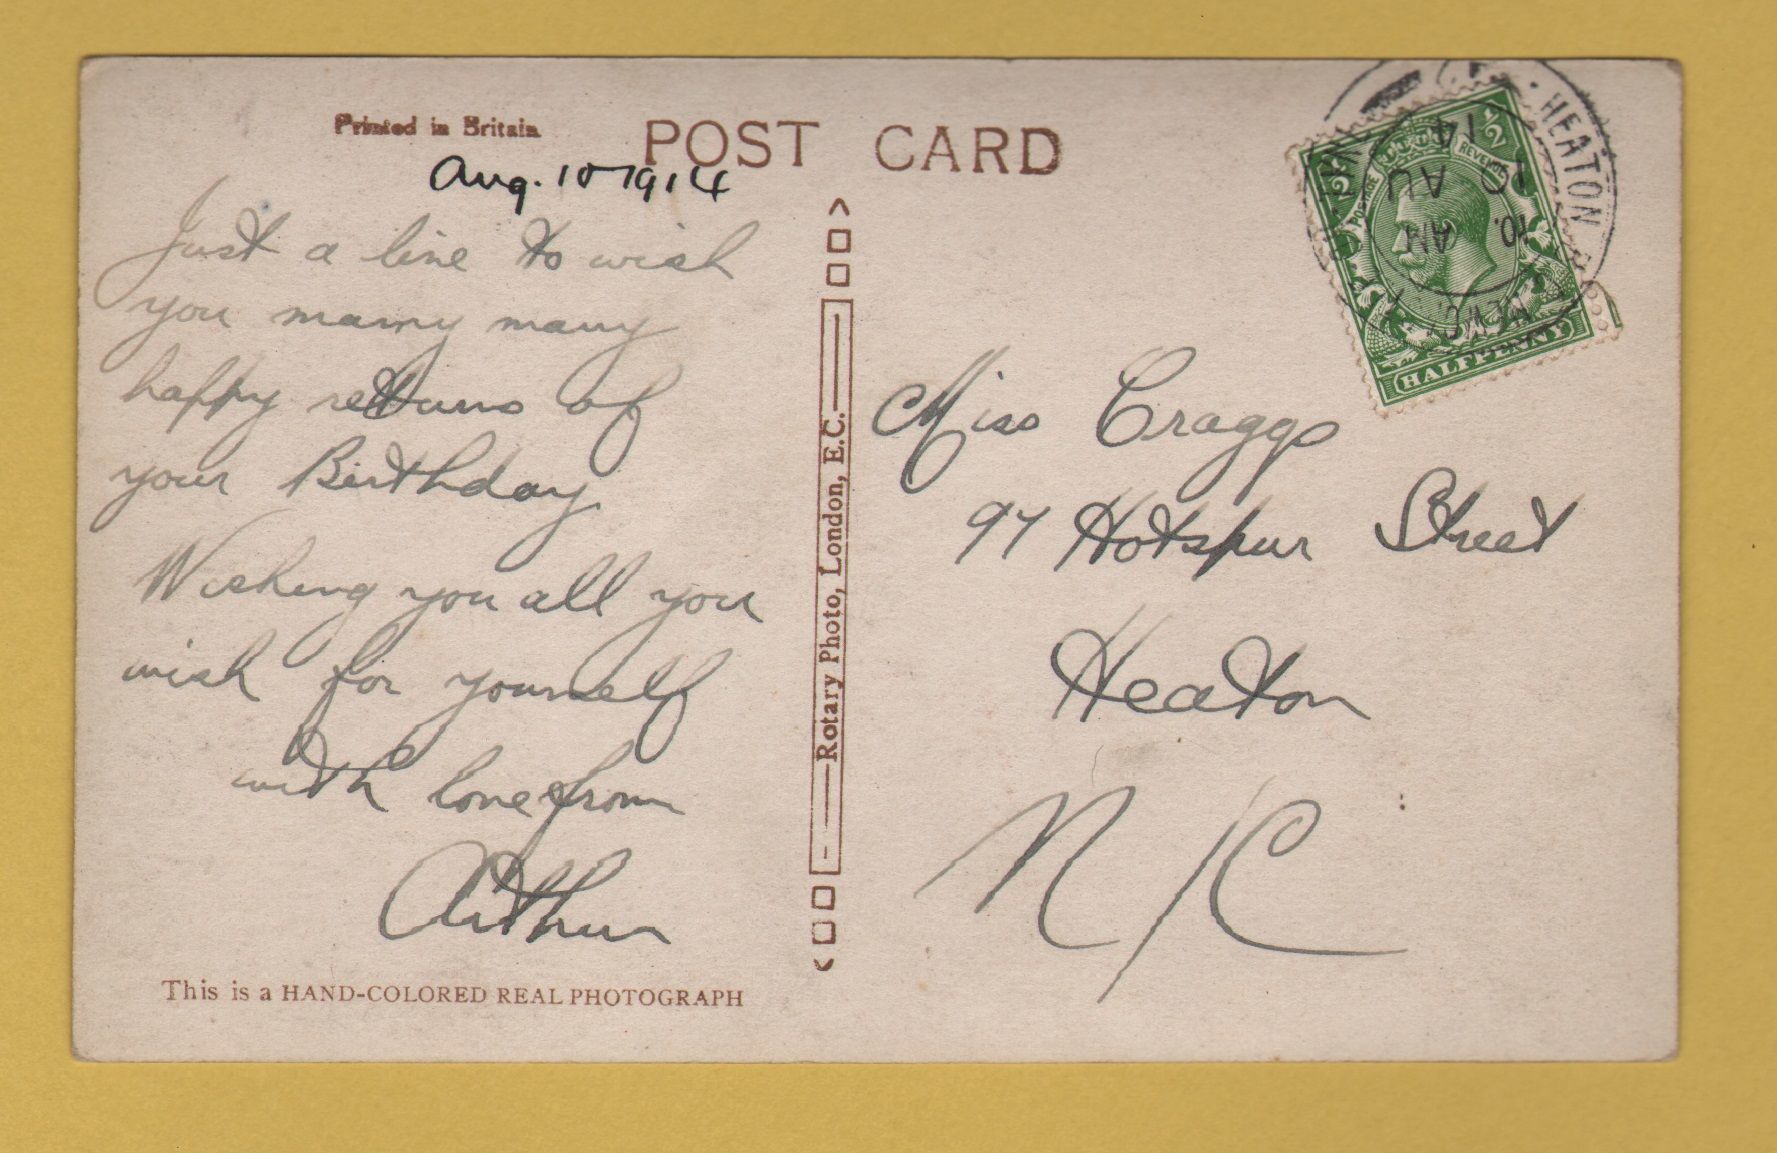 Printed in Britain
POST CARD
Aug. 10 1914
Just a line to wish
you many many
happy returns of
your Birthday.
Wishing you all you
wish for yourself
with love from
Arthur
This is a HAND-COLORED REAL PHOTOGRAPH
Rotary Photo, London, E.C.
HEATON
10. AM
10 AU
14
POSTAGE REVENUE
1/2 1/2
HALFPENNY
Miss Craggs
97 Hotspur Street
Heaton
N/C